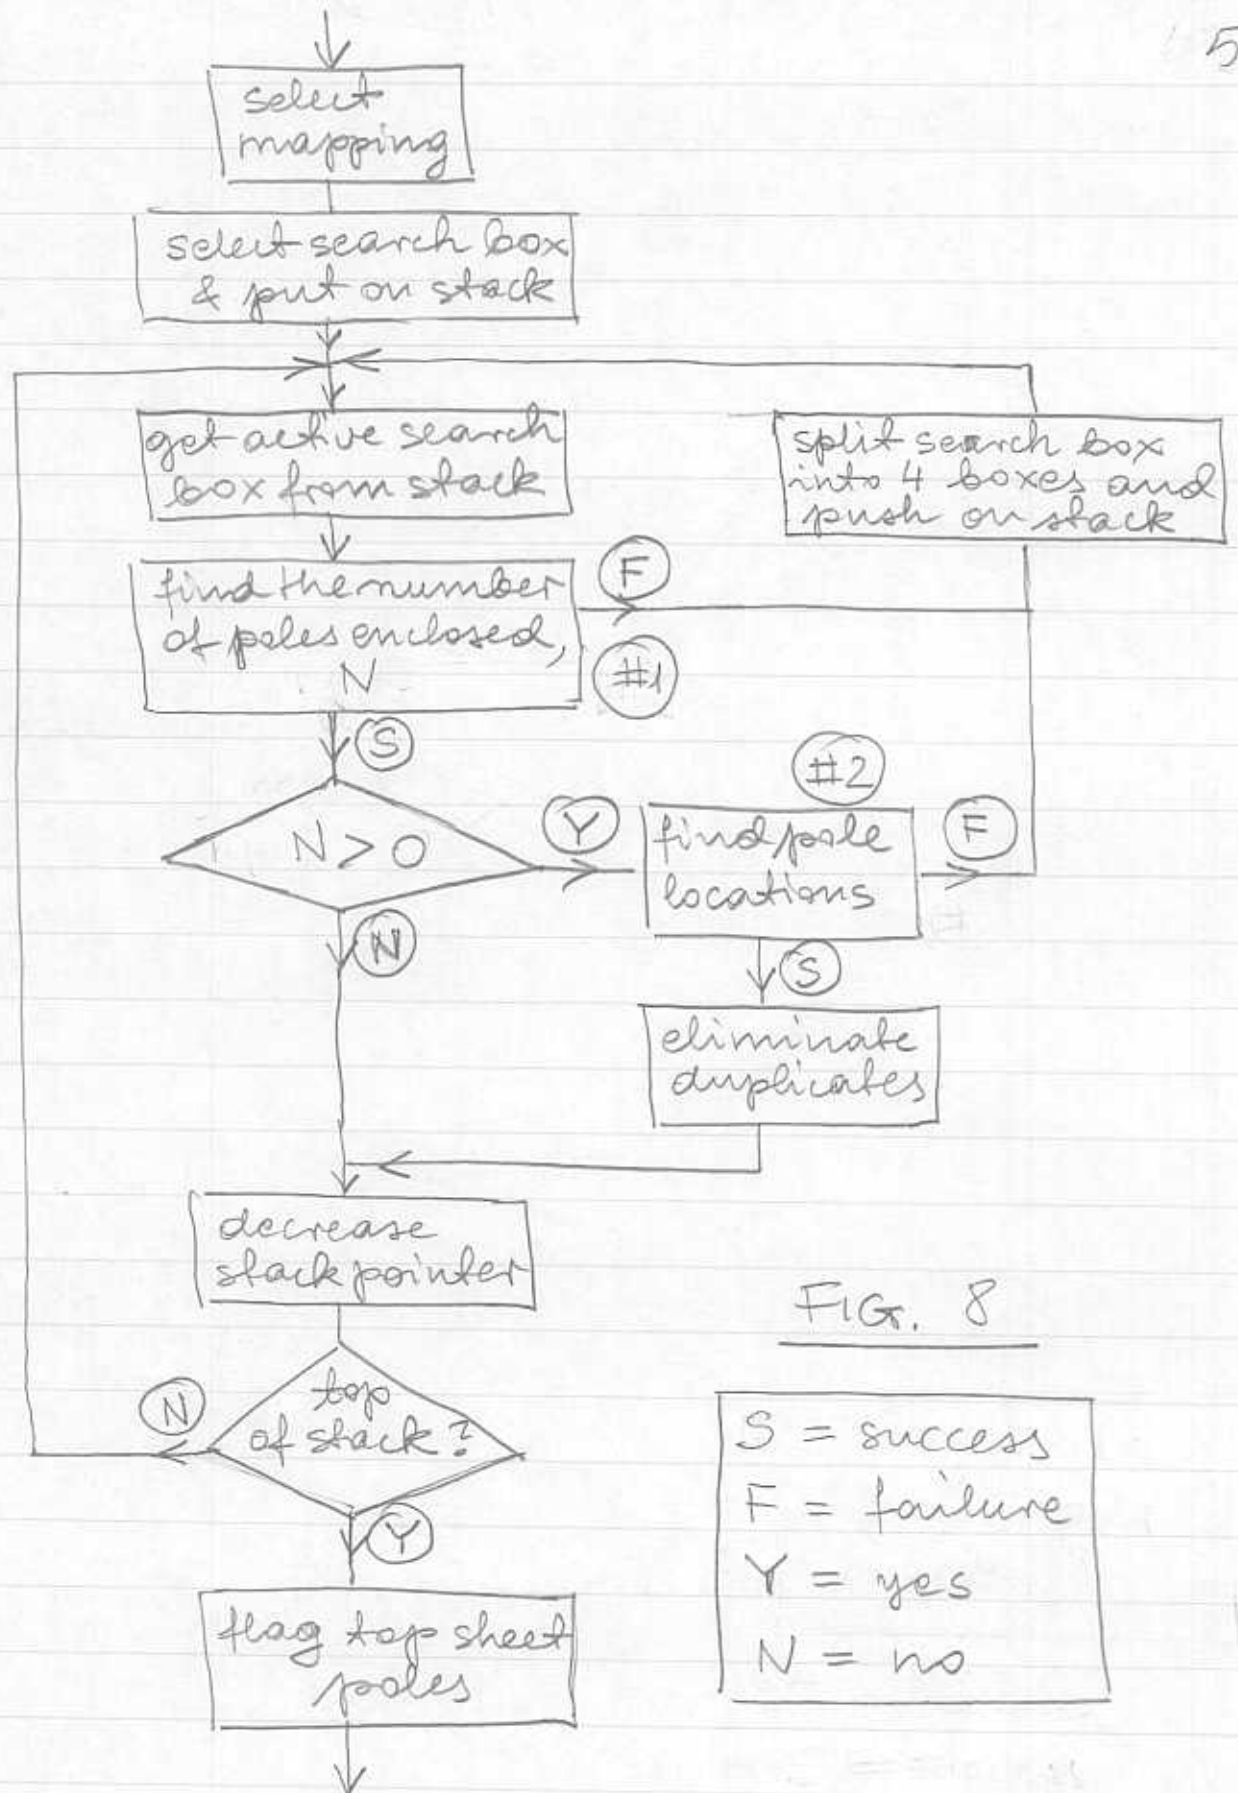 5
select
mapping
select search box
& put on stack
get active search
box from stack
split search box
into 4 boxes and
push on stack
find the number
of poles enclosed,
N
F
#1
S
N > 0
Y
#2
find pole
locations
F
N
S
eliminate
duplicates
decrease
stack pointer
FIG. 8
top
of stack?
N
Y
S = success
F = failure
Y = yes
N = no
flag top sheet
poles